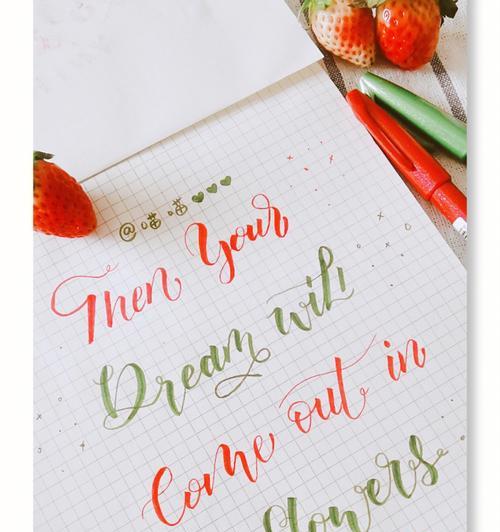 @喵喵
Then Your
Dream will
Come out in
flowers